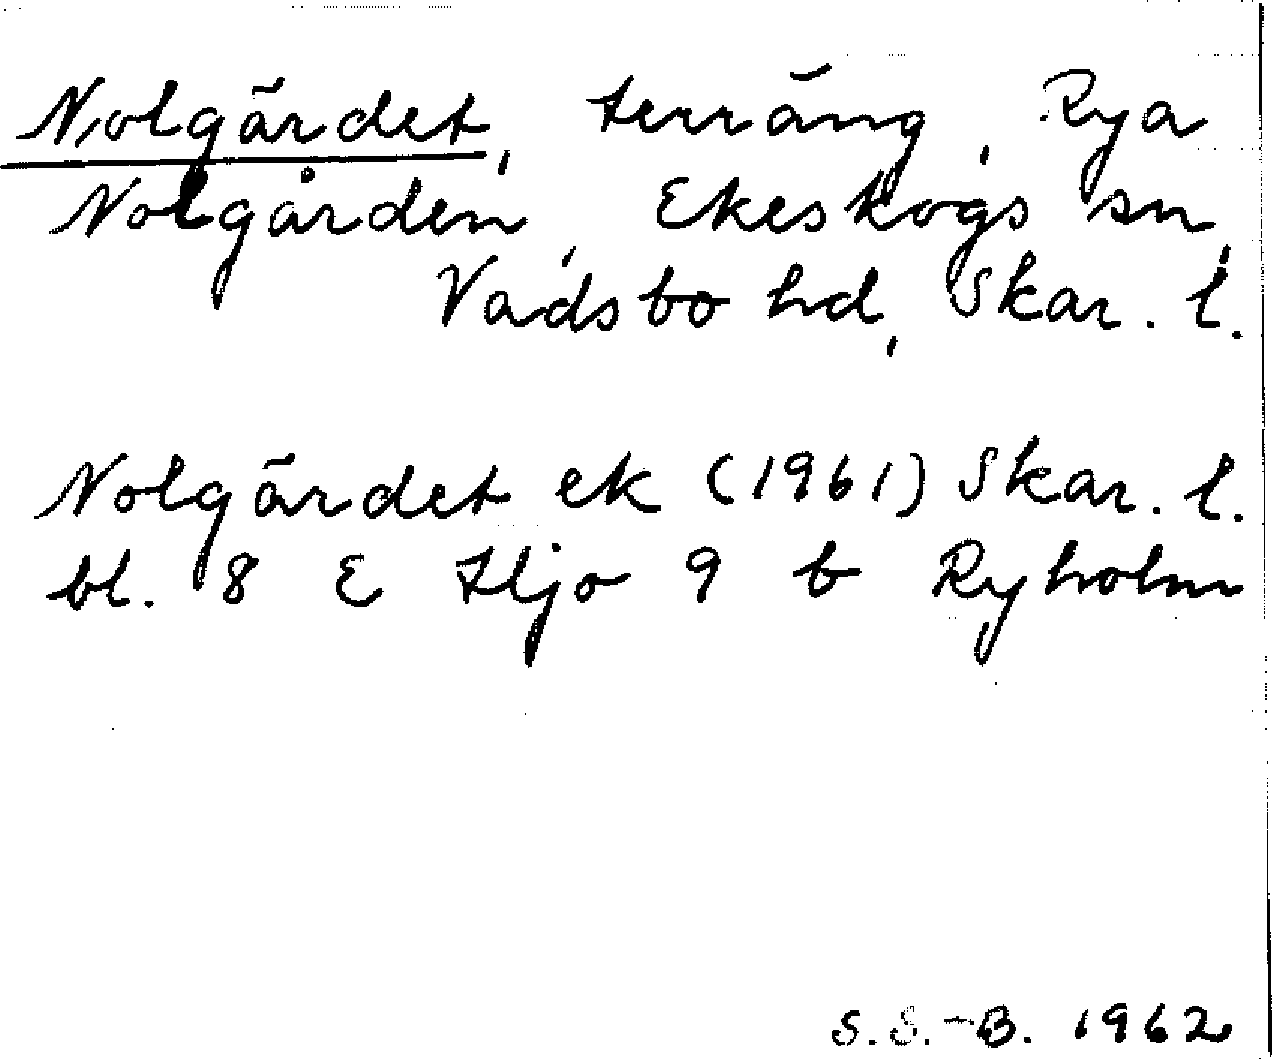 Nolgärdet, terräng, Rya
Nolgården, Ekeskogs sn,
Vadsbo hd, Skar. l.
Nolgärdet ek (1961) Skar. l.
bl. 8 E Hjo 9 b Ryholm
S.S.-B. 1962